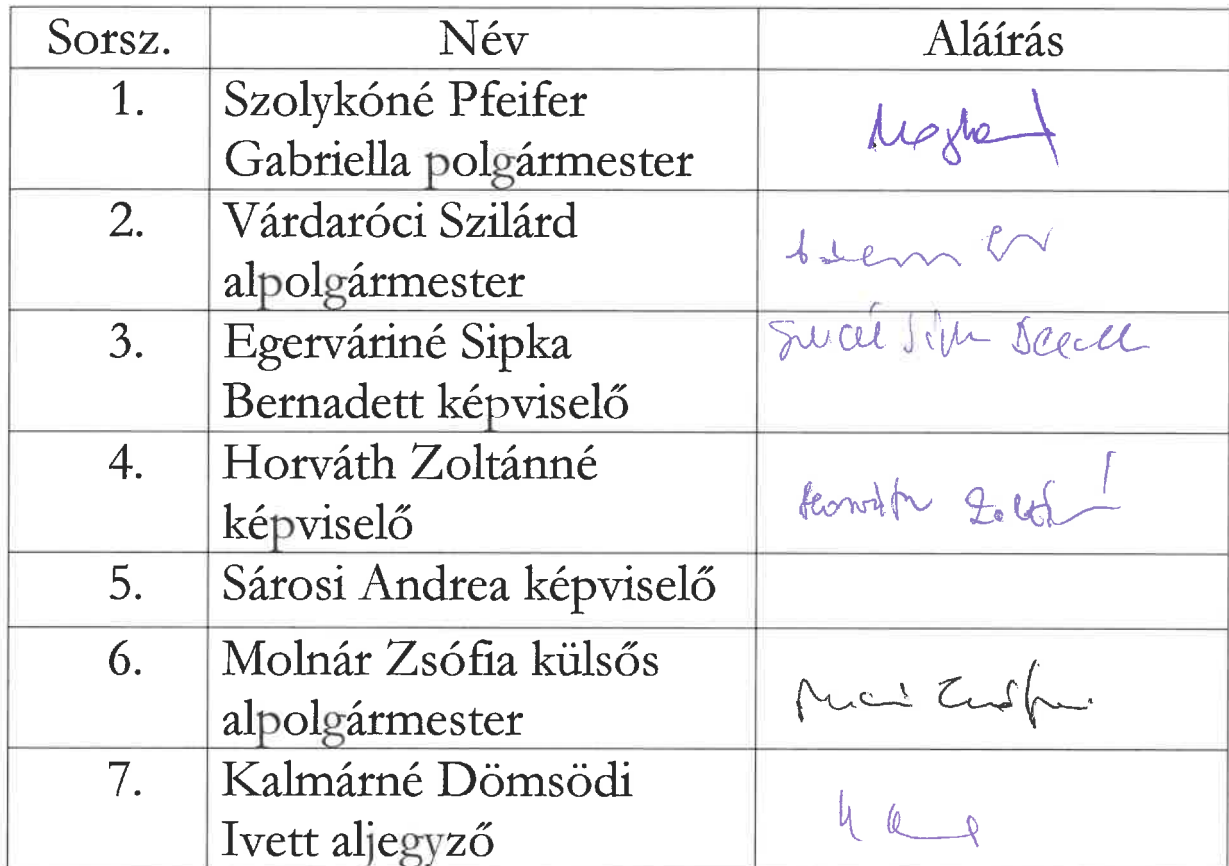 Sorsz. Név Aláírás
1. Szolykóné Pfeifer
Gabriella polgármester
2. Várdaróci Szilárd
alpolgármester
3. Egerváriné Sipka
Bernadett képviselő
4. Horváth Zoltánné
képviselő
Horváth
5. Sárosi Andrea képviselő
6. Molnár Zsófia külsős
alpolgármester
7. Kalmárné Dömsödi
Ivett aljegyző